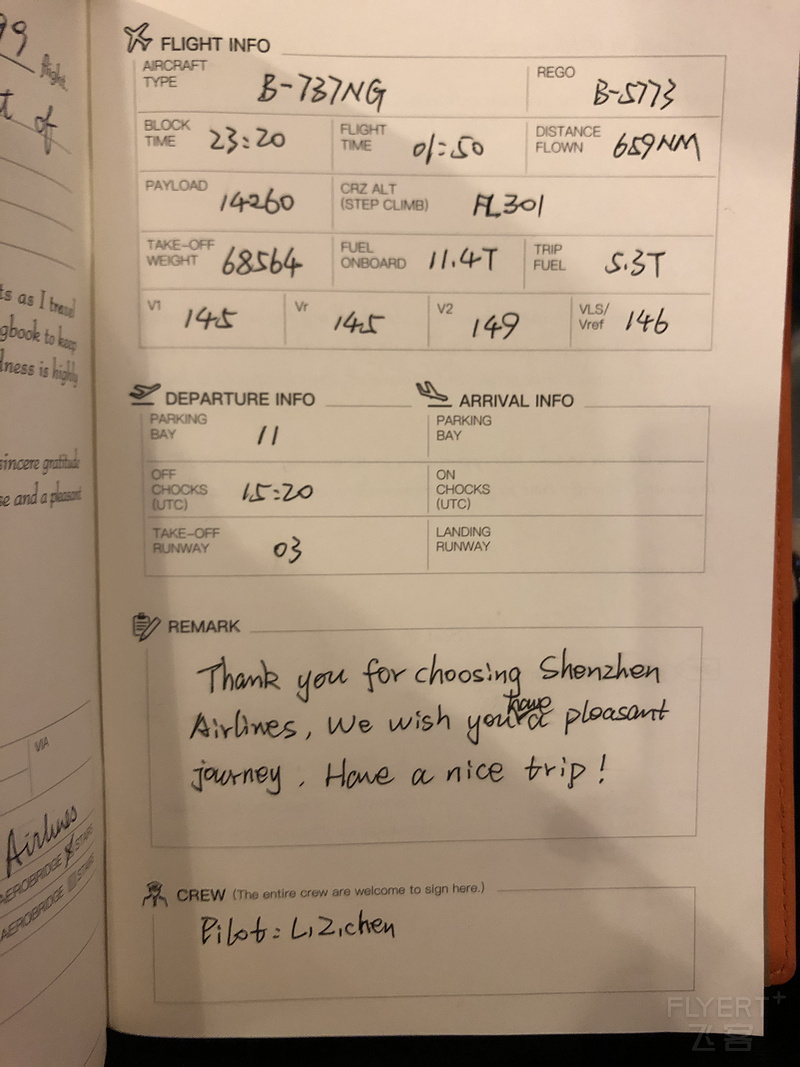 99
flight
t of
ts as I travel
gbook to keep
dness is highly
sincere gratitude
se and a pleasant
VIA
Airlines
AEROBRIDGE X STAIRS
AEROBRIDGE STAIRS
FLIGHT INFO
AIRCRAFT TYPE B-737NG REGO B-5773
BLOCK TIME 23:20 FLIGHT TIME 01:50 DISTANCE FLOWN 659NM
PAYLOAD 14260 CRZ ALT (STEP CLIMB) FL301
TAKE-OFF WEIGHT 68564 FUEL ONBOARD 11.4T TRIP FUEL 5.3T
V1 145 Vr 145 V2 149 VLS/ Vref 146
DEPARTURE INFO ARRIVAL INFO
PARKING BAY 11 PARKING BAY
OFF CHOCKS (UTC) 15:20 ON CHOCKS (UTC)
TAKE-OFF RUNWAY 03 LANDING RUNWAY
REMARK
Thank you for choosing Shenzhen
Airlines, We wish you have a pleasant
journey. Have a nice trip!
CREW (The entire crew are welcome to sign here.)
Pilot: Li Zichen
FLYERT+
飞客